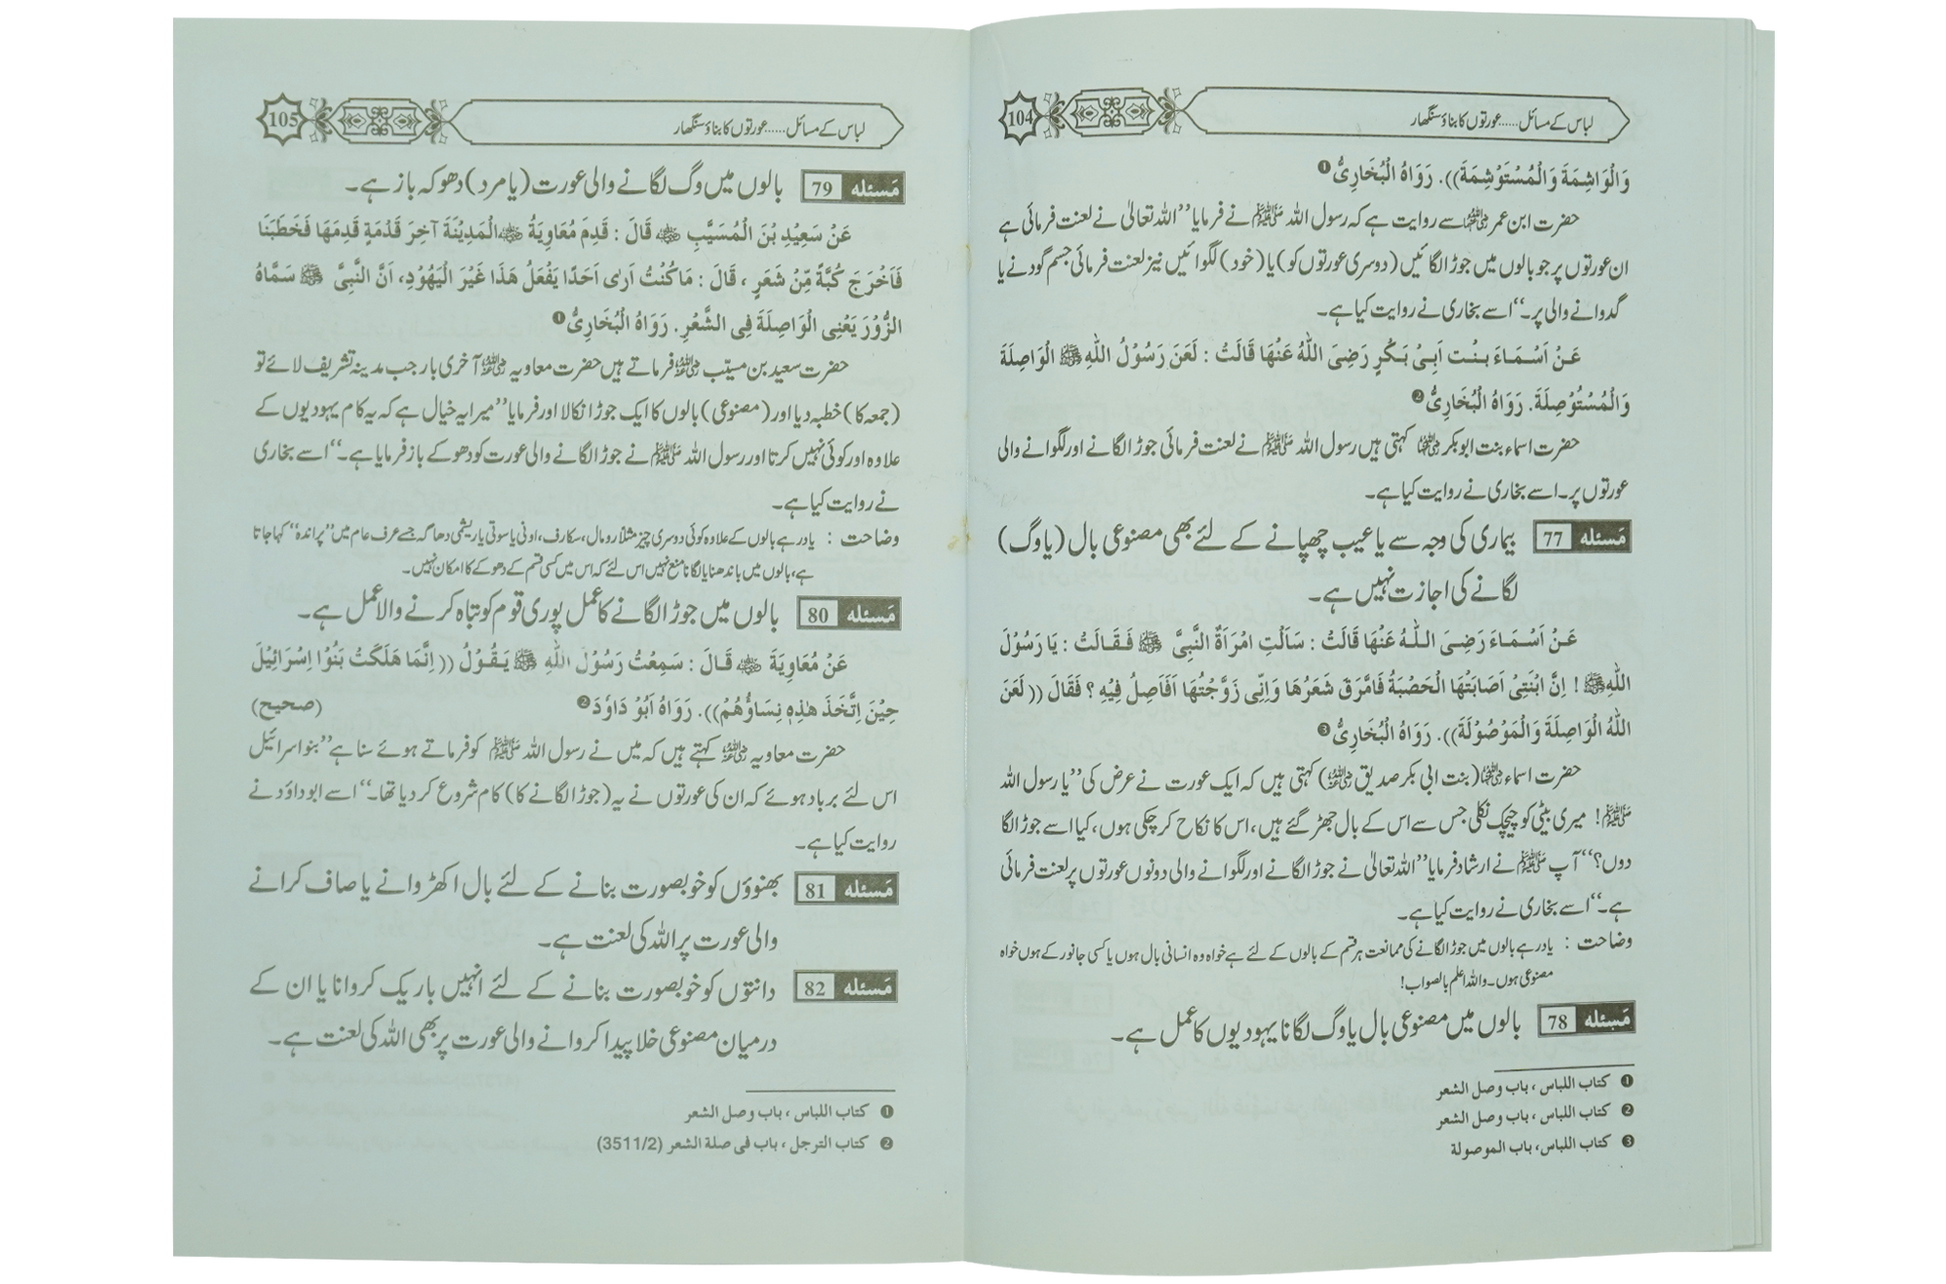 104
لباس کے مسائل.....عورتوں کا بناؤ سنگھار
وَالْوَاشِمَةَ وَالْمُسْتَوْشِمَةَ)). رَوَاهُ الْبُخَارِىُّ❶
حضرت ابن عمر رضی اللہ عنہما سے روایت ہے کہ رسول اللہ ﷺ نے فرمایا ’’اللہ تعالیٰ نے لعنت فرمائی ہے
ان عورتوں پر جو بالوں میں جوڑا لگائیں (دوسری عورتوں کو) یا (خود) لگوائیں نیز لعنت فرمائی جسم گودنے یا
گدوانے والی پر۔‘‘ اسے بخاری نے روایت کیا ہے۔
عَنْ اَسْمَاءَ بِنْتِ اَبِىْ بَكْرٍ رَضِىَ اللّٰهُ عَنْهَا قَالَتْ : لَعَنَ رَسُوْلُ اللّٰهِ ﷺ الْوَاصِلَةَ
وَالْمُسْتَوْصِلَةَ. رَوَاهُ الْبُخَارِىُّ❷
حضرت اسماء بنت ابو بکر رضی اللہ عنہا کہتی ہیں رسول اللہ ﷺ نے لعنت فرمائی جوڑا لگانے اور لگوانے والی
عورتوں پر۔ اسے بخاری نے روایت کیا ہے۔
مَسئله 77 بیماری کی وجہ سے یا عیب چھپانے کے لئے بھی مصنوعی بال (یا وگ)
لگانے کی اجازت نہیں ہے۔
عَنْ اَسْمَاءَ رَضِىَ اللّٰهُ عَنْهَا قَالَتْ : سَاَلَتِ امْرَاَةٌ النَّبِىَّ ﷺ فَقَالَتْ : يَا رَسُوْلَ
اللّٰهِ ﷺ ! اِنَّ ابْنَتِىْ اَصَابَتْهَا الْحَصْبَةُ فَامَّرَقَ شَعَرُهَا وَاِنِّى زَوَّجْتُهَا اَفَاَصِلُ فِيْهِ ؟ فَقَالَ (( لَعَنَ
اللّٰهُ الْوَاصِلَةَ وَالْمَوْصُوْلَةَ)). رَوَاهُ الْبُخَارِىُّ❸
حضرت اسماء رضی اللہ عنہا (بنت ابی بکر صدیق رضی اللہ عنہ) کہتی ہیں کہ ایک عورت نے عرض کی ’’یا رسول اللہ
ﷺ! میری بیٹی کو چیچک نکلی جس سے اس کے بال جھڑ گئے ہیں، اس کا نکاح کر چکی ہوں، کیا اسے جوڑا لگا
دوں؟‘‘ آپ ﷺ نے ارشاد فرمایا ’’اللہ تعالیٰ نے جوڑا لگانے اور لگوانے والی دونوں عورتوں پر لعنت فرمائی
ہے۔‘‘ اسے بخاری نے روایت کیا ہے۔
وضاحت : یاد رہے بالوں میں جوڑا لگانے کی ممانعت ہر قسم کے بالوں کے لئے ہے خواہ وہ انسانی بال ہوں یا کسی جانور کے ہوں خواہ
مصنوعی ہوں۔ واللہ اعلم بالصواب!
مَسئله 78 بالوں میں مصنوعی بال یا وگ لگانا یہودیوں کا عمل ہے۔
❶ کتاب اللباس ، باب وصل الشعر
❷ کتاب اللباس ، باب وصل الشعر
❸ کتاب اللباس، باب الموصولة
105
لباس کے مسائل.....عورتوں کا بناؤ سنگھار
مَسئله 79 بالوں میں وگ لگانے والی عورت (یا مرد) دھوکہ باز ہے۔
عَنْ سَعِيْدِ بْنِ الْمُسَيَّبِ رضی اللہ عنہ قَالَ : قَدِمَ مُعَاوِيَةُ رضی اللہ عنہ الْمَدِيْنَةَ آخِرَ قَدْمَةٍ قَدِمَهَا فَخَطَبَنَا
فَاَخْرَجَ كُبَّةً مِّنْ شَعَرٍ ، قَالَ : مَا كُنْتُ اَرٰى اَحَدًا يَفْعَلُ هَذَا غَيْرَ الْيَهُوْدِ، اَنَّ النَّبِىَّ ﷺ سَمَّاهُ
الزُّوْرَ يَعْنِى الْوَاصِلَةَ فِى الشَّعْرِ. رَوَاهُ الْبُخَارِىُّ❶
حضرت سعید بن مسیّب رضی اللہ عنہ فرماتے ہیں حضرت معاویہ رضی اللہ عنہ آخری بار جب مدینہ تشریف لائے تو
(جمعہ کا) خطبہ دیا اور (مصنوعی) بالوں کا ایک جوڑا نکالا اور فرمایا ’’میرا یہ خیال ہے کہ یہ کام یہودیوں کے
علاوہ اور کوئی نہیں کرتا اور رسول اللہ ﷺ نے جوڑا لگانے والی عورت کو دھوکے باز فرمایا ہے۔‘‘ اسے بخاری
نے روایت کیا ہے۔
وضاحت : یاد رہے بالوں کے علاوہ کوئی دوسری چیز مثلاً رومال، سکارف، اونی یا سوتی یا ریشمی دھاگہ جسے عرف عام میں ’’پراندہ‘‘ کہا جاتا
ہے، بالوں میں باندھنا یا لگانا منع نہیں اس لئے کہ اس میں کسی قسم کے دھوکے کا امکان نہیں۔
مَسئله 80 بالوں میں جوڑا لگانے کا عمل پوری قوم کو تباہ کرنے والا عمل ہے۔
عَنْ مُعَاوِيَةَ رضی اللہ عنہ قَالَ : سَمِعْتُ رَسُوْلَ اللّٰهِ ﷺ يَقُوْلُ (( اِنَّمَا هَلَكَتْ بَنُوْا اِسْرَائِيْلَ
حِيْنَ اِتَّخَذَ هٰذِهٖ نِسَاؤُهُمْ)). رَوَاهُ اَبُوْ دَاوُدَ❷ (صحیح)
حضرت معاویہ رضی اللہ عنہ کہتے ہیں کہ میں نے رسول اللہ ﷺ کو فرماتے ہوئے سنا ہے ’’بنو اسرائیل
اس لئے برباد ہوئے کہ ان کی عورتوں نے یہ (جوڑا لگانے کا) کام شروع کر دیا تھا۔‘‘ اسے ابوداؤد نے
روایت کیا ہے۔
مَسئله 81 بھنوؤں کو خوبصورت بنانے کے لئے بال اکھڑوانے یا صاف کرانے
والی عورت پر اللہ کی لعنت ہے۔
مَسئله 82 دانتوں کو خوبصورت بنانے کے لئے انہیں باریک کروانا یا ان کے
درمیان مصنوعی خلا پیدا کروانے والی عورت پر بھی اللہ کی لعنت ہے۔
❶ کتاب اللباس ، باب وصل الشعر
❷ کتاب الترجل ، باب فی صلة الشعر (3511/2)